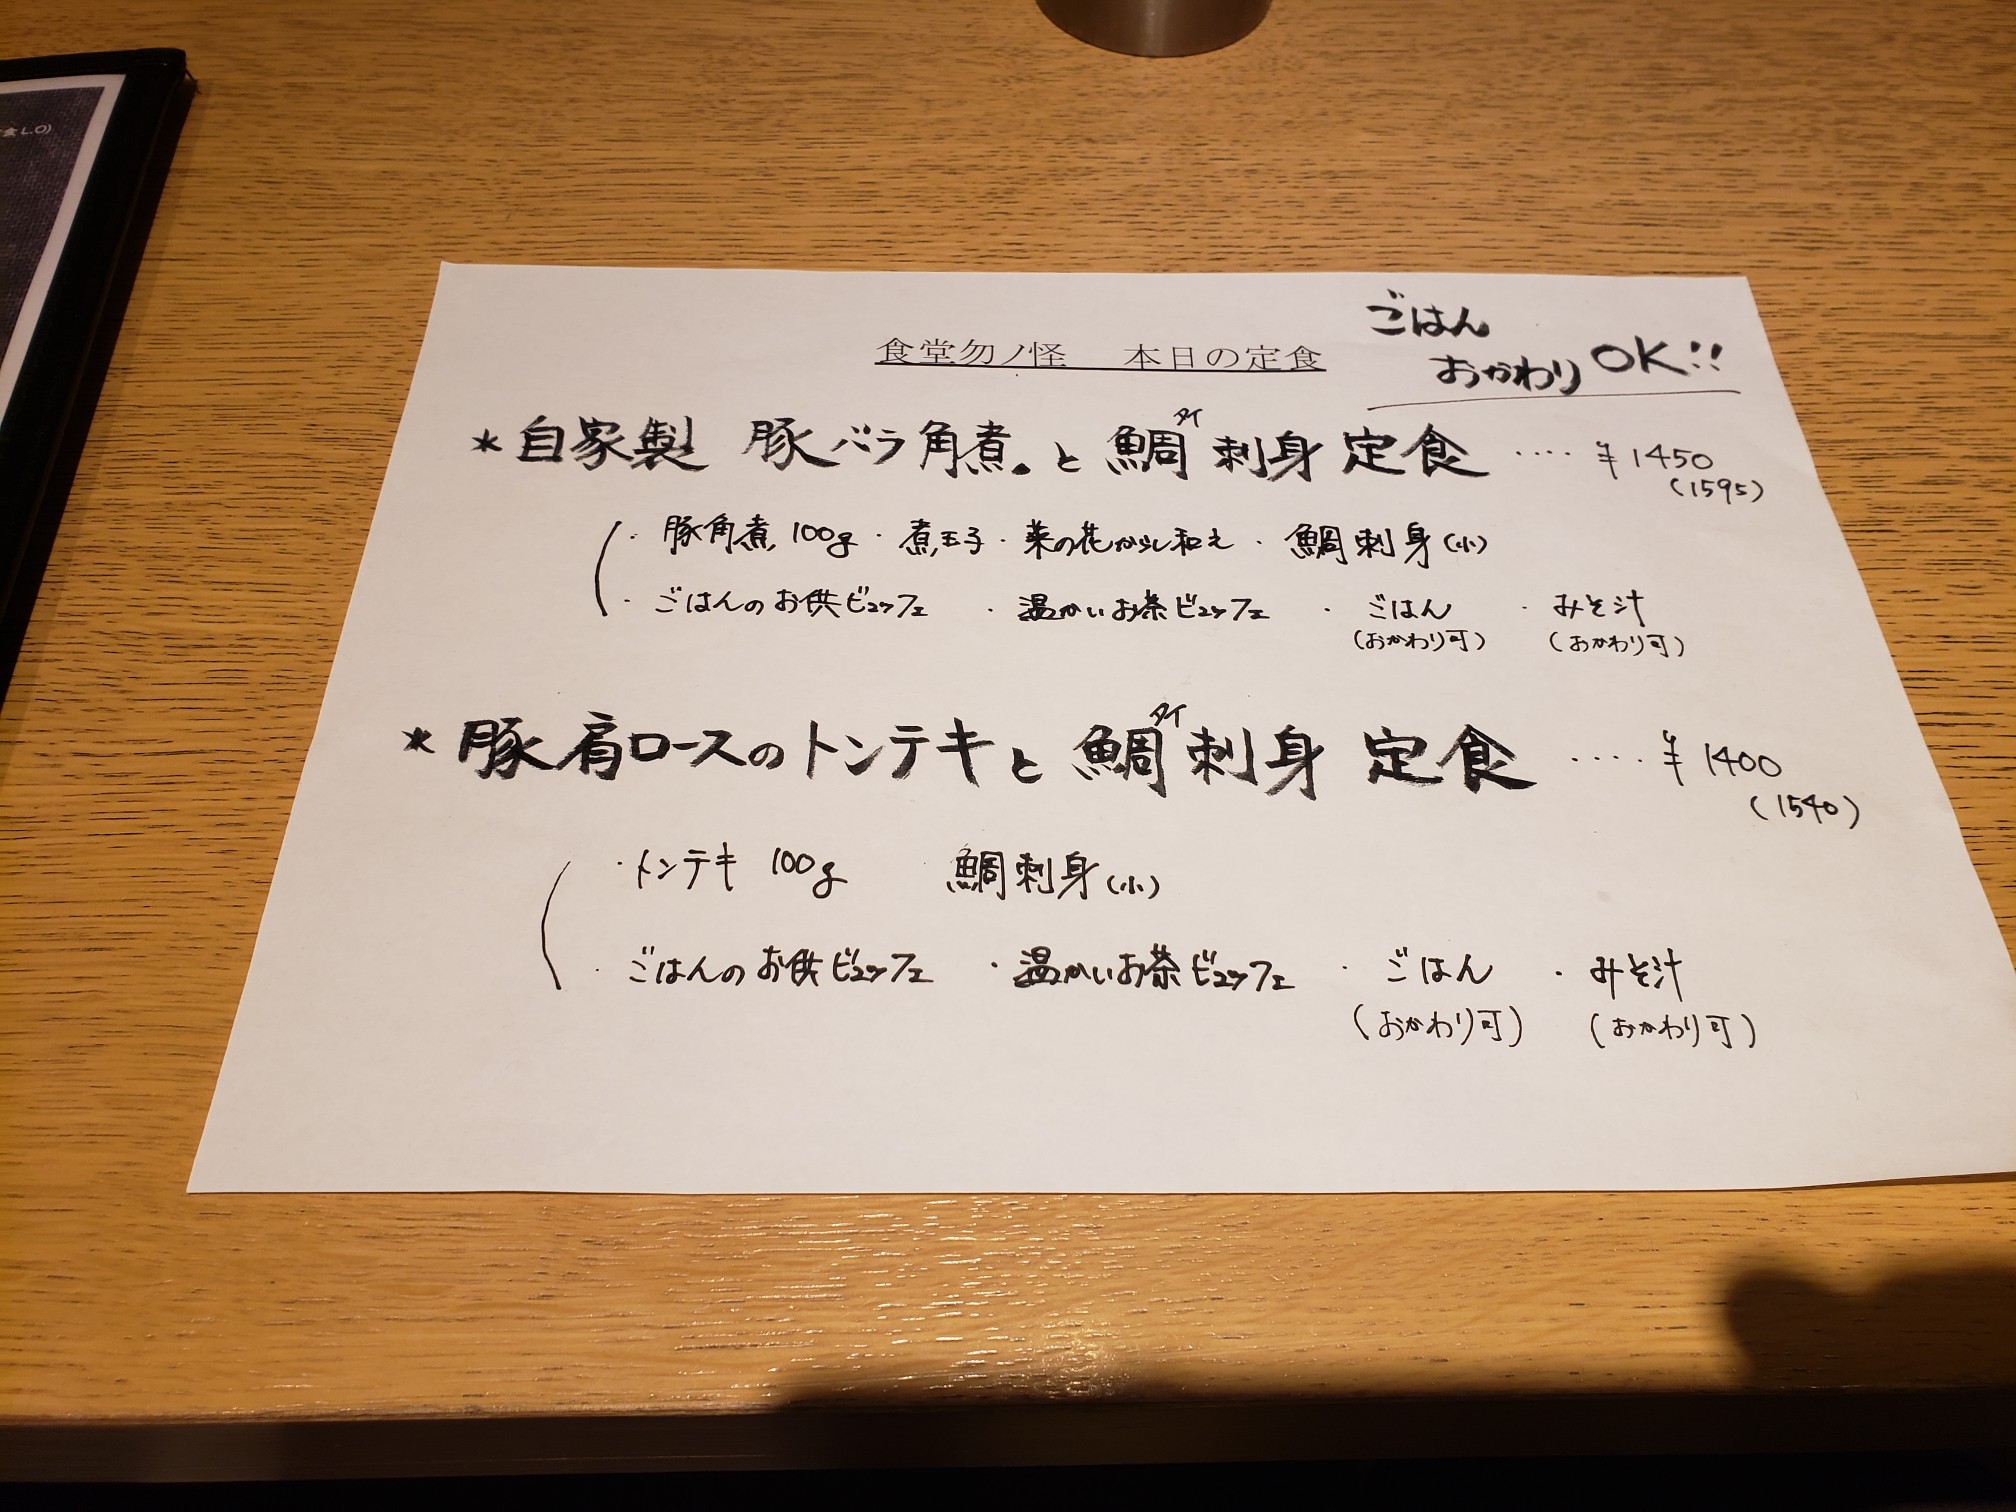 食 L.O)
食堂勿ノ怪 本日の定食
ごはん
おかわり OK!!
*自家製 豚バラ角煮。と鯛刺身定食 ····¥1450
タイ
(1595)
・豚角煮 100g ・煮玉子・菜の花からし和え ・鯛刺身(小)
・ごはんのお供ビュッフェ ・温かいお茶ビュッフェ ・ごはん ・みそ汁
(おかわり可) (おかわり可)
*豚肩ロースのトンテキと鯛刺身定食 ····¥1400
タイ
(1540)
・トンテキ 100g 鯛刺身(小)
・ごはんのお供ビュッフェ ・温かいお茶ビュッフェ ・ごはん ・みそ汁
(おかわり可) (おかわり可)